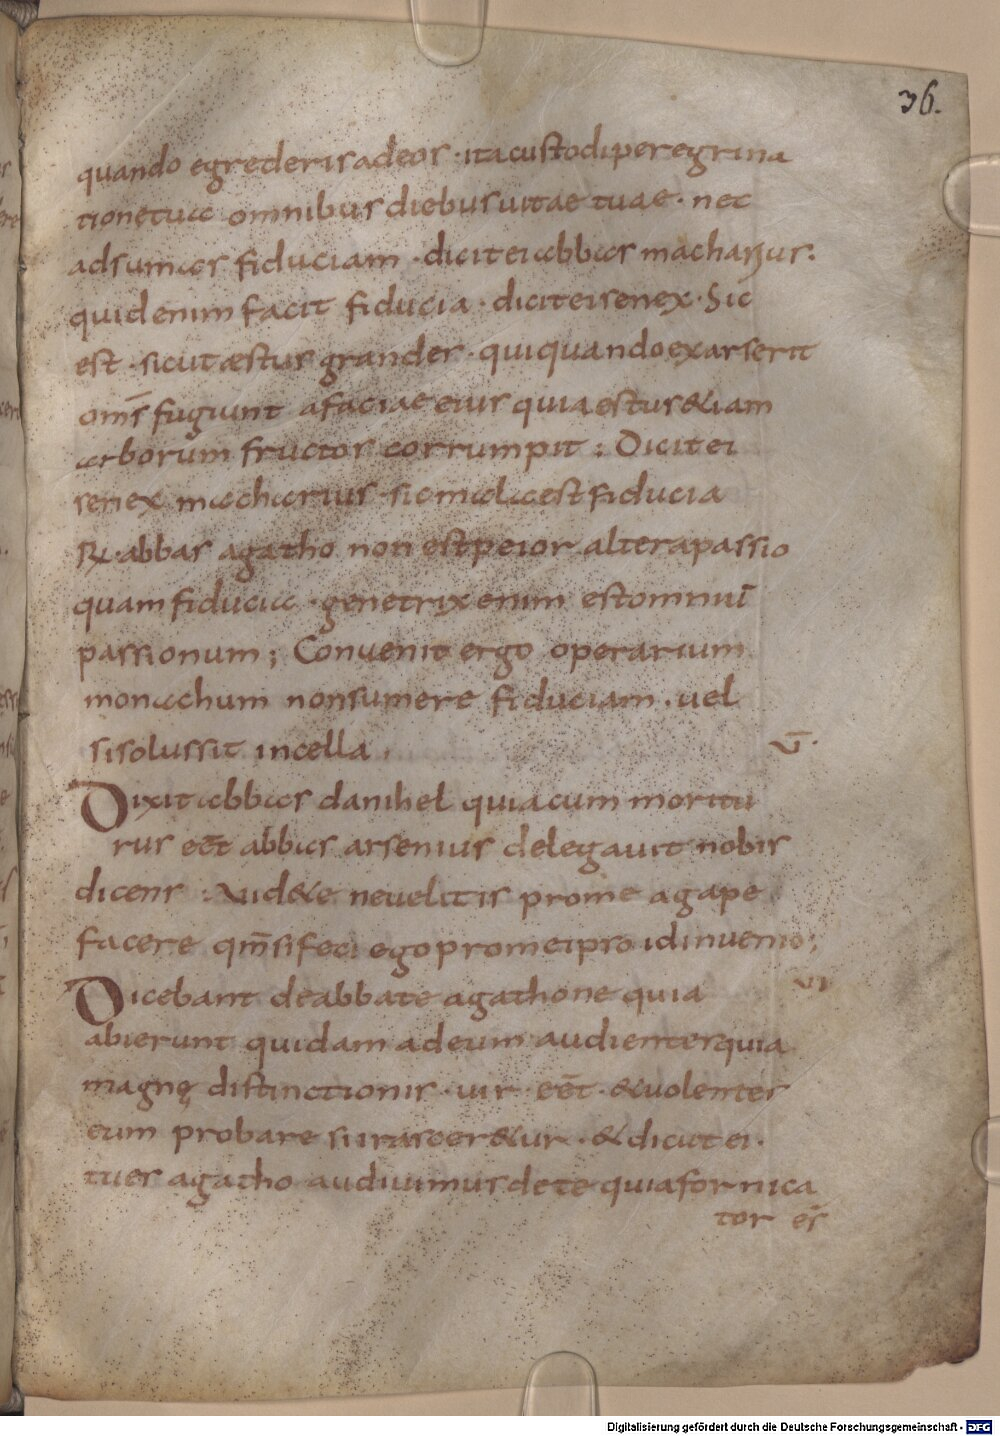 36.
quando egrederis ad eos · ita custodi peregrina
tionē tuā omnibus diebus uitae tuae · nec
adsumas fiduciam · dicit ei abbas macharius:
quid enim facit fiducia · dicit ei senex · Sic
est · sicut æstus grandes · qui quando exarserit
om̅s fugiunt a faciae eius quia estus & iam
arborum fructos corrumpit ; Dicit ei
senex macharius · sic mala est fiducia
R̸ · abbas agatho non est peior altera passio
quam fiducia · genetrix enim est omniū
passionum ; Convenit ergo operarium
monachum non sumere fiduciam · uel
si solus sit in cella ·
v̅ ·
Dixit abbas danihel quia cum moritu
rus eēt abbas arsenius delegauit nobis
dicens : Uid&e ne uelitis pro me agape
facere qm̅ si feci ego pro me ipso id inuenio ;
vi
Dicebant de abbate agathone quia
abierunt quidam ad eum audientes quia
magnę distinctionis · uir · eēt · & uolentes
eum probare si irascer&ur · & dicut ei ·
tu es agatho audiuimus de te quia fornica
tor es
Digitalisierung gefördert durch die Deutsche Forschungsgemeinschaft - DFG